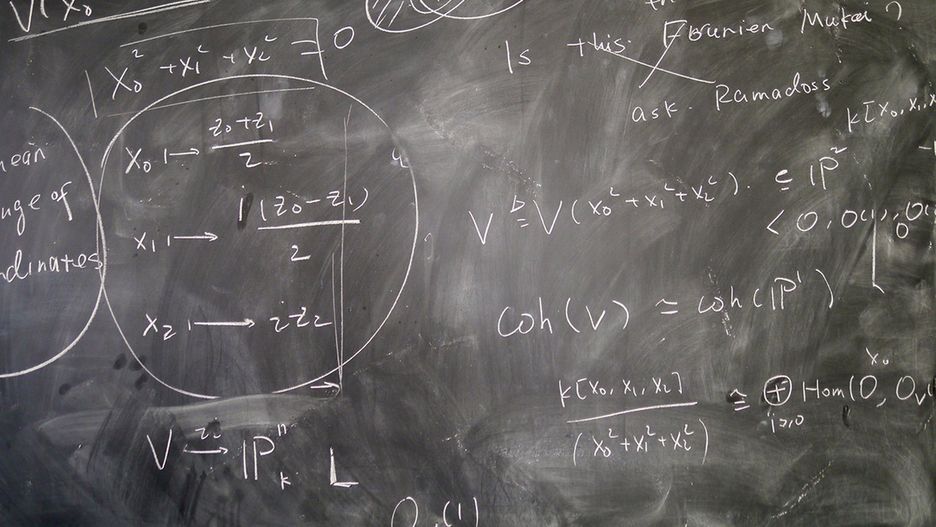 V(x₀
x₀² + x₁² + x₂² = 0
near
nge of
rdinates
x₀ ↦ (z₀+z₁)/2
x₁ ↦ i(z₀-z₁)/2
x₂ ↦ iz₂
V → ℙⁿₖ L
Is this Fourier Mukai?
ask Ramadoss
k[x₀, x₁, x
V ≜ V(x₀² + x₁² + x₂²). ⊆ ℙ²
< O, O(1), O(
O
Coh(V) ≃ Coh(ℙ¹)
k[x₀, x₁, x₂] / (x₀² + x₁² + x₂²) ≅ ⊕ i≥0 Hom(O, Oᵥ(
x₀
(1)